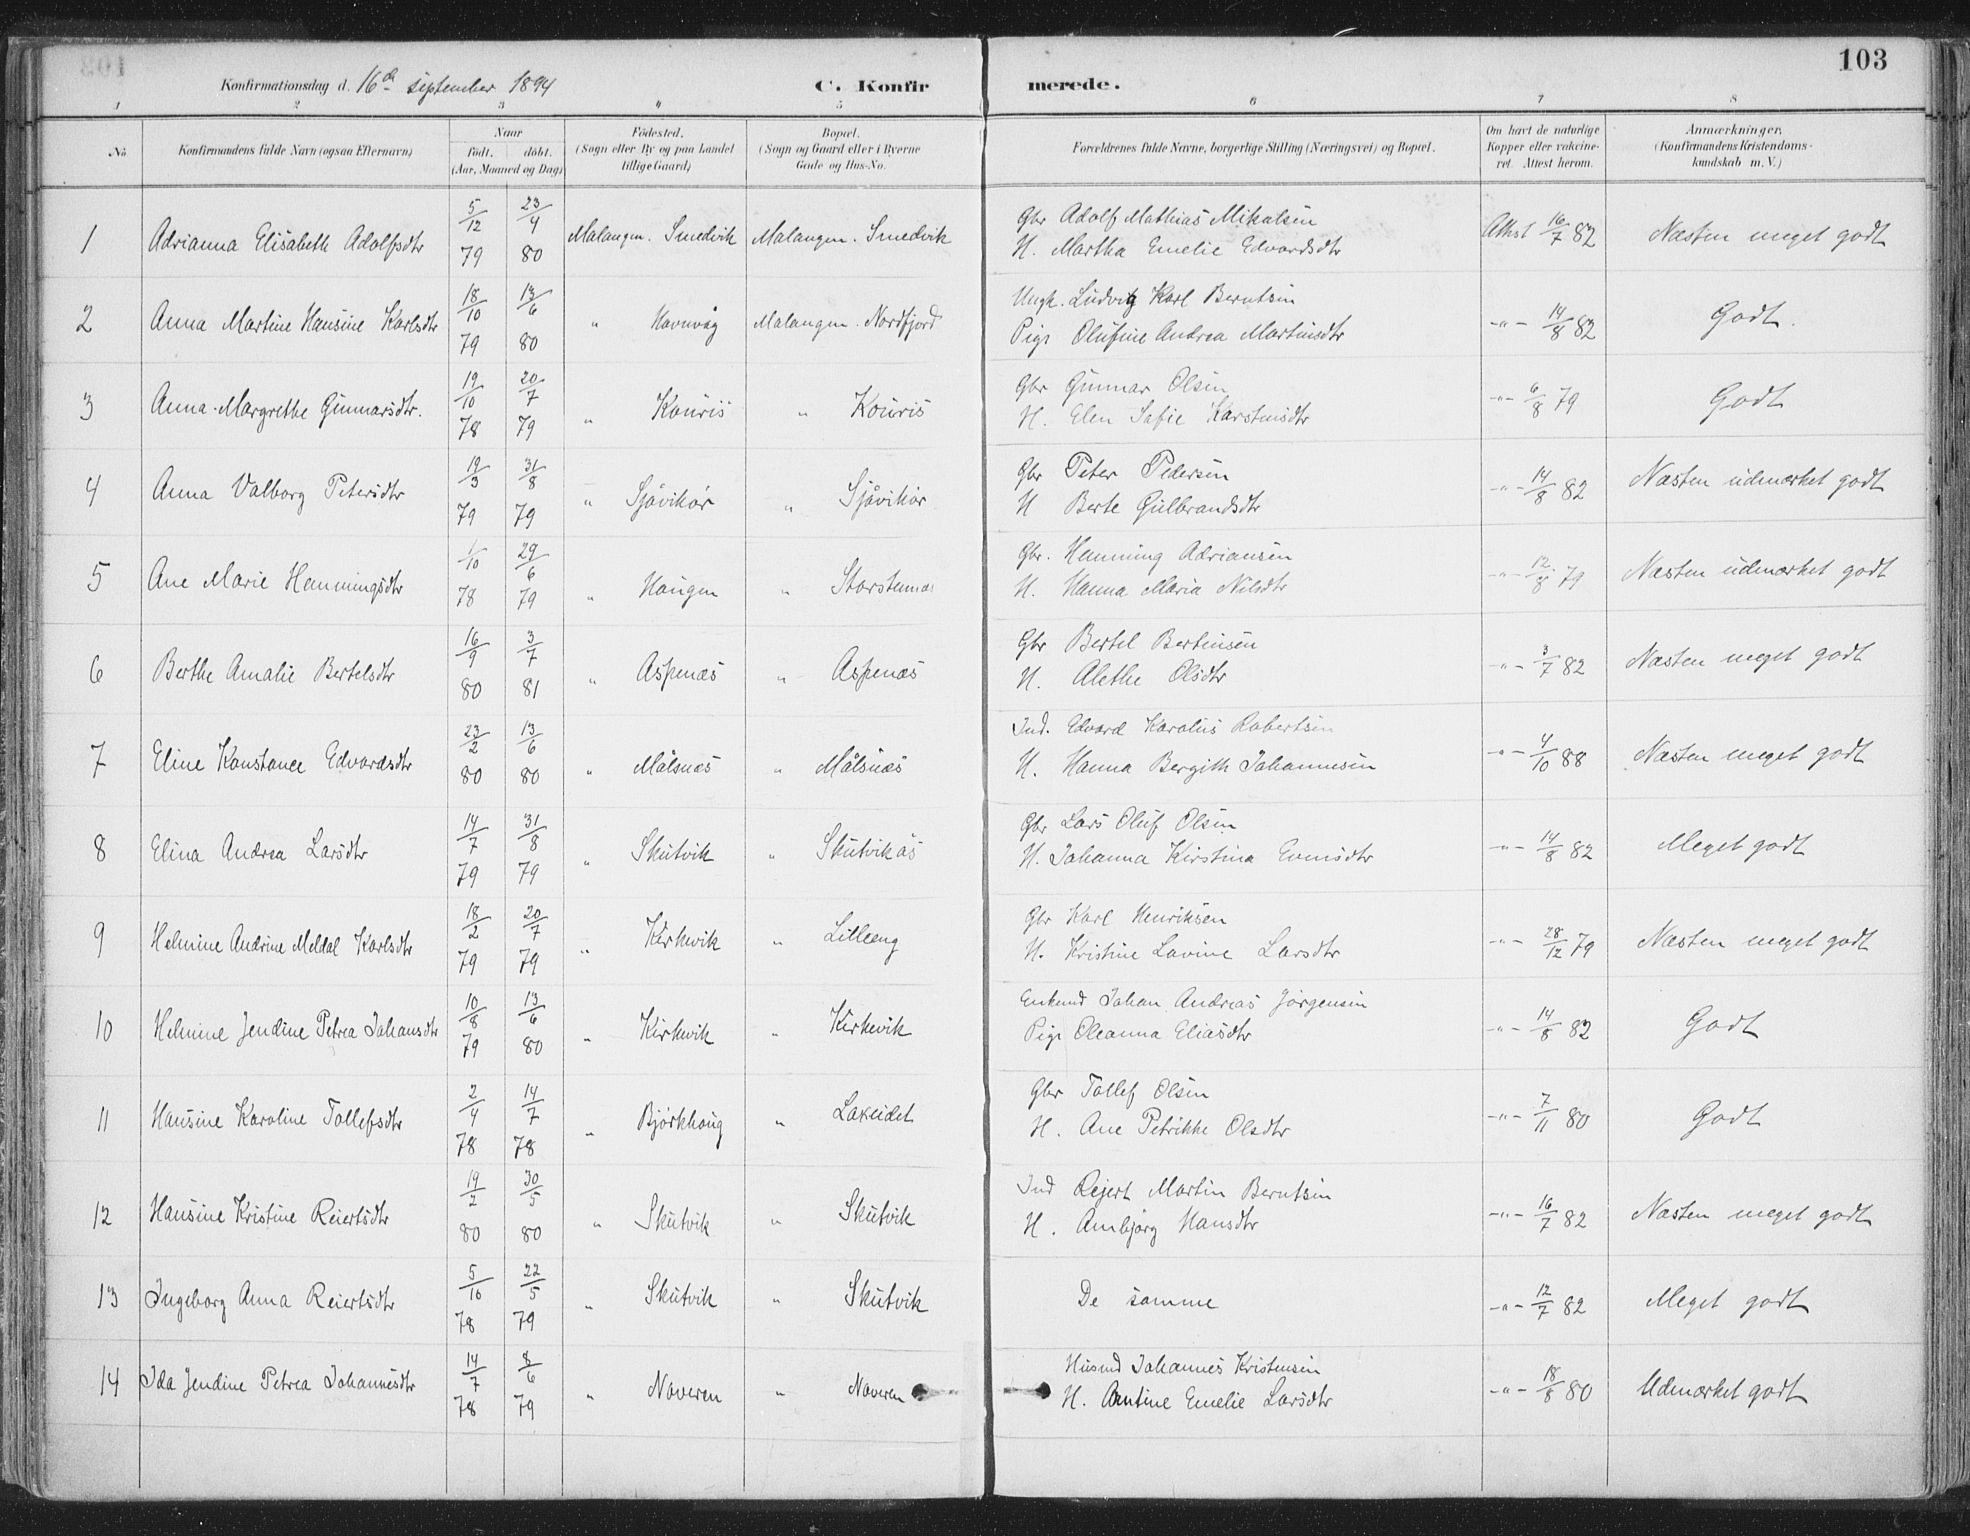 103
Konfirmationsdag d. 16de september 1894 C. Konfirmerede.
1 2 3 4 5 6 7 8
No
Konfirmandens fulde Navn (ogsaa Efternavn)
Naar
født. døbt.
(Aar, Maaned og Dag)
Fødested.
(Sogn eller By og paa Landet
tillige Gaard)
Bopæl.
(Sogn og Gaard eller i Byerne
Gade og Hus-No.
Forældrenes fulde Navne, borgerlige Stilling (Næringsvei) og Bopæl.
Om havt de naturlige
Kopper eller vakcine-
ret. Attest herom.
Anmærkninger.
(Konfirmandens Kristendoms-
kundskab m. V.)
1 Adrianna Elisabeth Adolfsdtr 5/12 79 23/4 80 Malangen. Smedvik Malangen. Smedvik
Gbr Adolf Mathias Mikalsen
H. Martha Emelie Edvardsdtr
Attest 16/7 82 Næsten meget godt
2 Anna Martine Hansine Karlsdtr 18/10 79 13/6 80 " Havnvåg Malangen. Nordfjord
Ungk. Ludvig Karl Berntsen
Pige Olufine Andrea Martinsdtr
-"- 14/8 82 Godt.
3 Anna Margrethe Gunnarsdtr. 19/10 78 20/7 79 " Kouris " Kouris
Gbr Gunnar Olsen
H. Elen Safie Karstensdtr
-"- 6/8 79 Godt
4 Anna Valborg Petersdtr 19/3 79 31/8 79 " Sjåvikør " Sjåvikør
Gbr Peter Pedersen
H Berte Gulbrandsdtr
-"- 14/8 82 Næsten udmærket godt
5 Ane Marie Henningsdtr 1/10 78 29/6 79 " Haugen " Storstennæs
Gbr. Henning Adriansen
H. Hanna Maria Nilsdtr
-"- 12/8 79 Næsten udmærket godt
6 Berthe Amalie Bertelsdtr 16/9 80 3/7 81 " Aspenæs " Aspenæs
Gbr Bertel Bertinsen
H. Alethe Olsdtr
-"- 3/7 82 Næsten meget godt
7 Eline Konstance Edvardsdtr 23/2 80 13/6 80 " Målsnæs " Målsnæs
Ind. Edvard Karolius Robertsen
H. Hanna Bergith Johannesen
-"- 4/10 88 Næsten meget godt
8 Elina Andrea Larsdtr 14/7 79 31/8 79 " Skutvik " Skutvikås
Gbr Lars Oluf Olsen
H. Johanna Kirstina Evensdtr
-"- 14/8 82 Meget godt
9 Helmine Andrine Meldal Karlsdtr 18/2 79 20/7 79 " Kirkevik " Lilleeng
Gbr Karl Henriksen
H. Kristine Lovine Larsdtr
-"- 28/12 79 Næsten meget godt
10 Helmine Jendine Petrea Johansdtr 10/8 79 13/6 80 " Kirkevik " Kirkevik
Enkemd Johan Andreas Jørgensen
Pige Oleanna Eliasdtr
-"- 14/8 82 Godt
11 Hansine Karoline Tollefsdtr 2/4 78 14/7 78 " Bjørkhoug " Lakseidet
Gbr Tollef Olsen
H. Ane Petrikke Olsdtr
-"- 7/11 80 Godt
12 Hansine Kristine Reiertsdtr 19/2 80 30/5 80 " Skutvik " Skutvik
Ind Rejert Martin Berntsen
H. Anbjørg Hansdtr
-"- 16/7 82 Næsten meget godt
13 Ingeborg Anna Reiertsdtr 5/10 78 22/5 79 " Skutvik " Skutvik
De samme
-"- 12/7 82 Meget godt
14 Ida Jendine Petrea Johannesdtr 14/7 78 8/6 79 " Naveren " Naveren
Husmd Johannes Kristensen
H. Antine Emelie Larsdtr
-"- 18/8 80 Udmærket godt